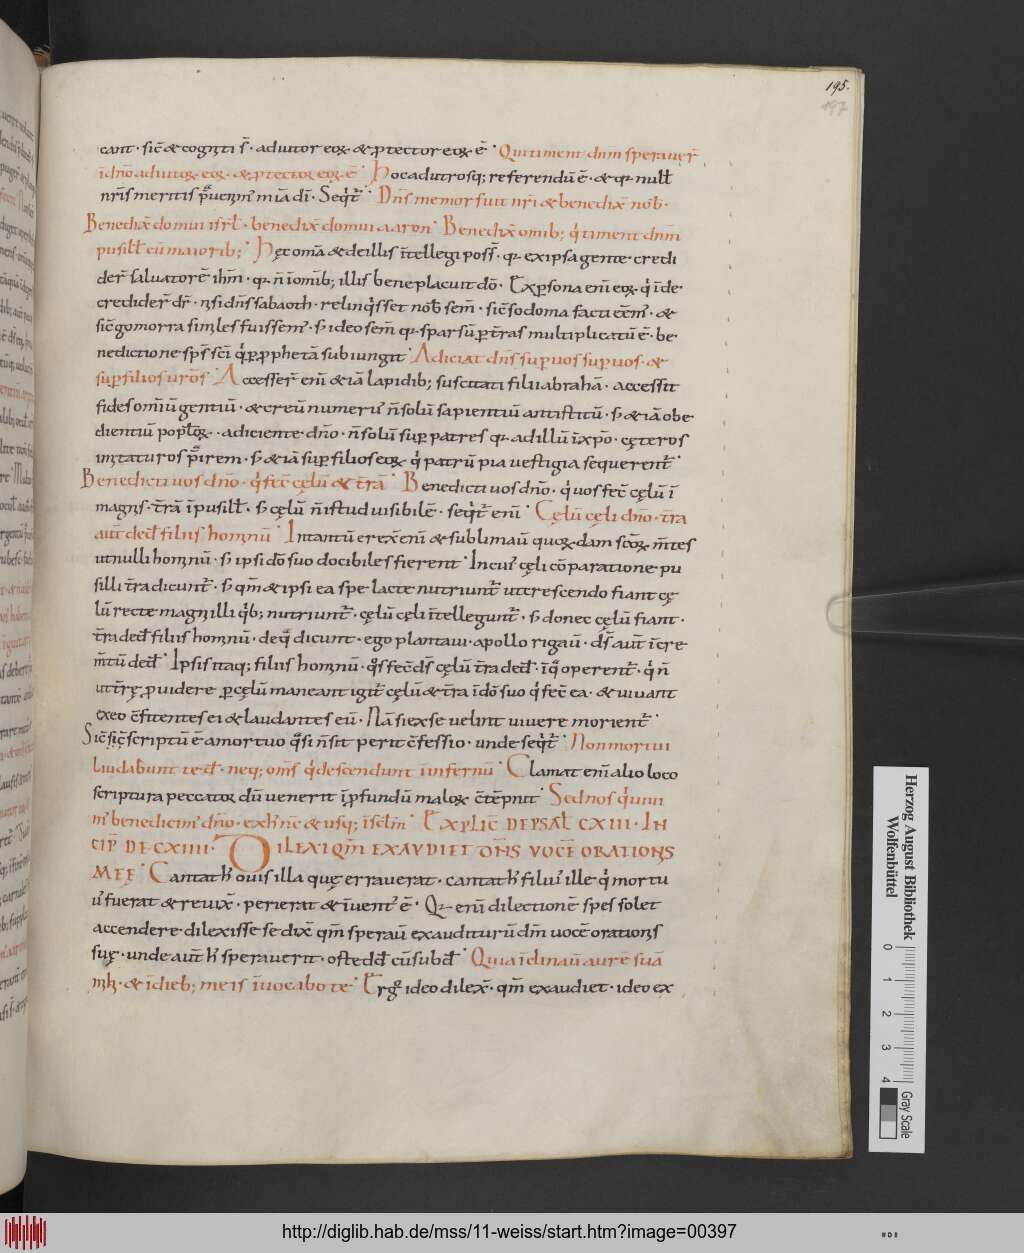 195.
197
cant· sic̄ & cogniti s̄· adiutor eoꝝ & ꝓtector eoꝝ ē· Qui timent dn̄m sperauer̄
ī dn̄o adiutoꝝ eoꝝ· & ꝓtectoꝝ eoꝝ ē· Hoc ad utrosq; referendū ē· & q nułł
nr̄is meritis p̄uenim᾿ mīa dī· Seq̇t᾿ Dn̄s memor fuit nr̄i & benedix̄ nob̄·
Benedix̄ domui isrł· benedix̄ domui aaron· Benedix̄ omib; q̇ timent dn̄m
pusiłł cū maiorib; Hęc omā & de illis ītellegi poss̄· q ex ipsa gente credi
der̄ saluatorē ihm̄· q n̄ ī omīb; illis bene placuit dō· Ex ꝑsona enī eoꝝ q̇ īde
credider̄ dr̄· nisi dn̄s sabaoth· relinq̇sset nob̄ sem̄· sic̄ sodoma facti eēm᾿· &
sic̄ gomorra similes fuissem᾿· s; ideo sem̄ q sparsū ꝑ t̄ras multiplicatū ē· be
nedictione sp̄s sc̄i q̇ ꝑ ꝓphetā subiungit· Adiciat dn̄s suꝑ uos suꝑ uos· &
suꝑ filios ur̄os· Accesser̄ enī & iā lapidib; suscitati filii abrahā· accessit
fides omīū gentiū· & creū numeru᾿ n̄ solū sapientiū antistitū· s; & iā obe
dientiū poplōꝝ· adiciente dn̄o· n̄ solū suꝑ patres q ad illū īxp̄o· cęteros
imitaturos p̄irem· s; & iā suꝑ filios eoꝝ q̇ patrū pia uestigia sequerent᾿·
Benedicti uos dn̄o· q̇ fec̄ cęlū & t̄rā· Benedicti uos dn̄o· q̇ uos fec̄ cęlū ī
magnis· t̄rā ī pusiłł· s; cęlū n̄ istud uisibilē· seq̇t᾿ enī· Cęlū cęli dn̄o· t̄ra
aut̄ ded̄ filiis hominū· In tantū erex̄ enī & sublimaū quoꝝdam sc̄oꝝ m̄tes
ut nulli hominū· s; ipsi dō suo docibiles fierent· In cui᾿ cęli cōparatione pu
silli t̄ra dicunt᾿· s; qm̄ & ipsi ea spe lacte nutriunt᾿ ut crescendo fiant cę
lū recte magni illi q̇b; nutriunt᾿· cęlū cęli ītellegunt᾿· s; donec cęlū fiant·
t̄ra ded̄ filiis hominū· de q̇ dicunt· ego plantaui· apollo rigaū· ds̄ aut̄ īcre
m̄tū ded̄· Ipsis itaq; filiis hominū· q̇s fec̄ ds̄ cęlū t̄ra ded̄· ī q̇ operent᾿· q̇ n̄
ut t̄rę ꝓuidere ꝑ cęlū maneant igit᾿ cęlū & t̄ra ī dō suo q̇ fec̄ ea· & uiuant
ex eo c̄fitentes ei & laudantes eū· Nā si ex se uelint uiuere morient᾿·
Sic̄ sic̄ scriptū ē a mortuo q̇si n̄ sit perit c̄fessio· unde seq̇t᾿ Non mortui
laudab̄unt te dn̄e· neq; om̄s q̇ descendunt ī infernū· Clamat enī alio loco
scriptura peccator dū uenerit ī ꝓfundū maloꝝ c̄tēpnit· Sed nos q̇ uiui
m᾿ benedicim᾿ dn̄o· ex h̄ nc̄ & usq; ī sc̄lm̄· EXPLIC̄ DE PSAŁ CXIII· IN
CIP̄ DE CXIIII· DILEXI QM̄ EXAUDIET DN̄S UOCĒ ORATIONIS
MEĘ· Cantat h̄ ouis illa quę errauerat· cantat h̄ filiu᾿ ille q̇ mortu
u᾿ fuerat & reuix̄· perierat & īuent᾿ ē· Q enī dilectionē spes solet
accendere dilexisse se dix̄ qm̄ speraū exauditurū dn̄m uocē orationis
suę· unde aut̄ h̄ sperauerit· ostēdd̄ cū subd̄· Quia īclinaū aurē suā
mihi· & ī dieb; meis īuocabo te· Ergo ideo dilex̄· qm̄ exaudiet· ideo ex
Herzog August Bibliothek
Wolfenbüttel
0 1 2 3 4
Gray Scale
http://diglib.hab.de/mss/11-weiss/start.htm?image=00397